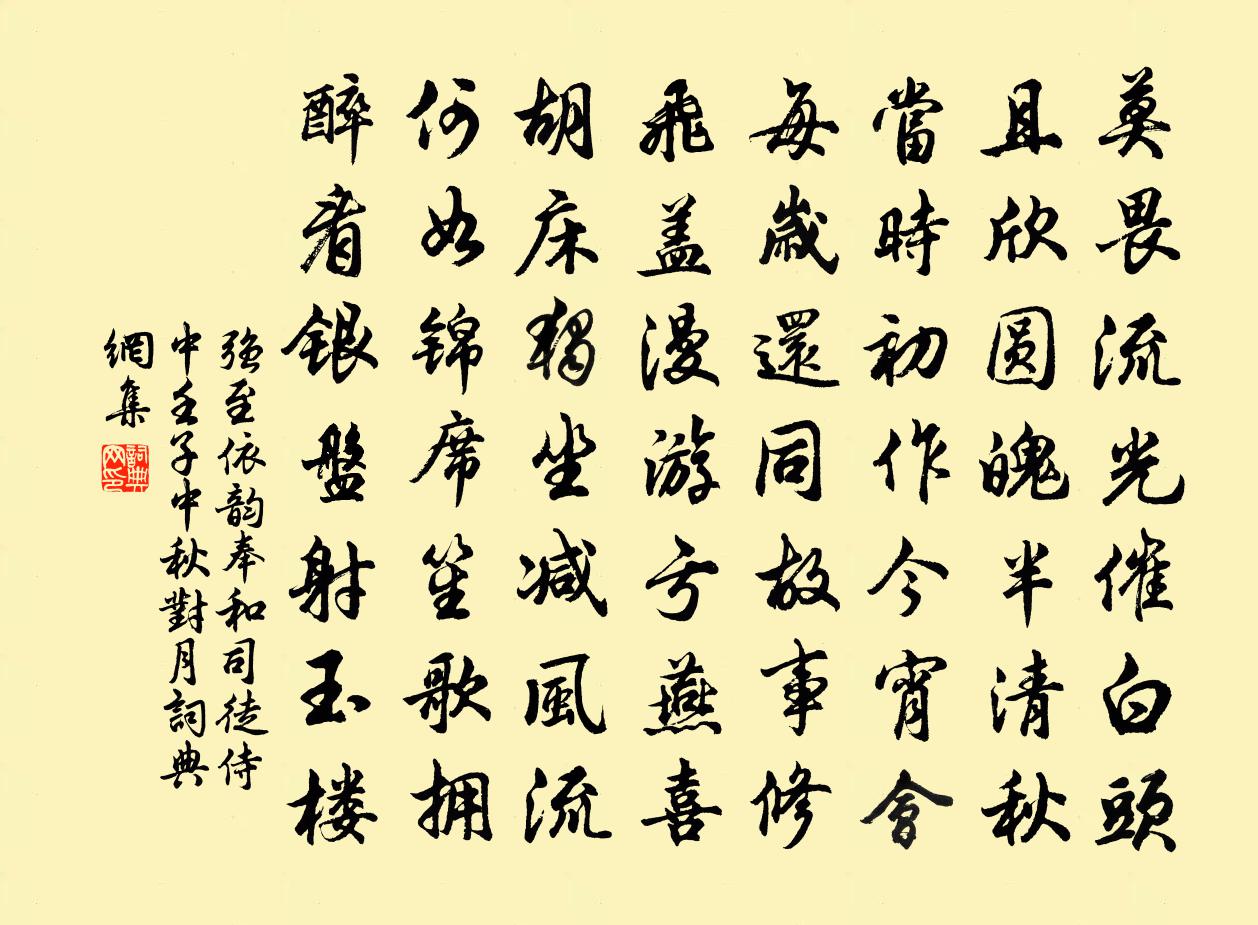 莫畏流光催白頭
且欣圓魄半清秋
當時初作今宵會
每歲還同故事修
飛盖漫游亏燕喜
胡床獨坐减風流
何如錦席笙歌拥
醉看銀盤射玉楼
强至依韵奉和司徒侍
中壬子中秋對月詞典
網集
詞典网印